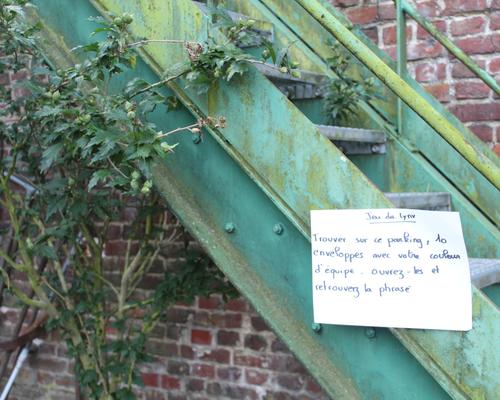 Jeu du lynx
Trouver sur ce parking, 10
enveloppes avec votre couleur
d'équipe. ouvrez-les et
retrouvez la phrase